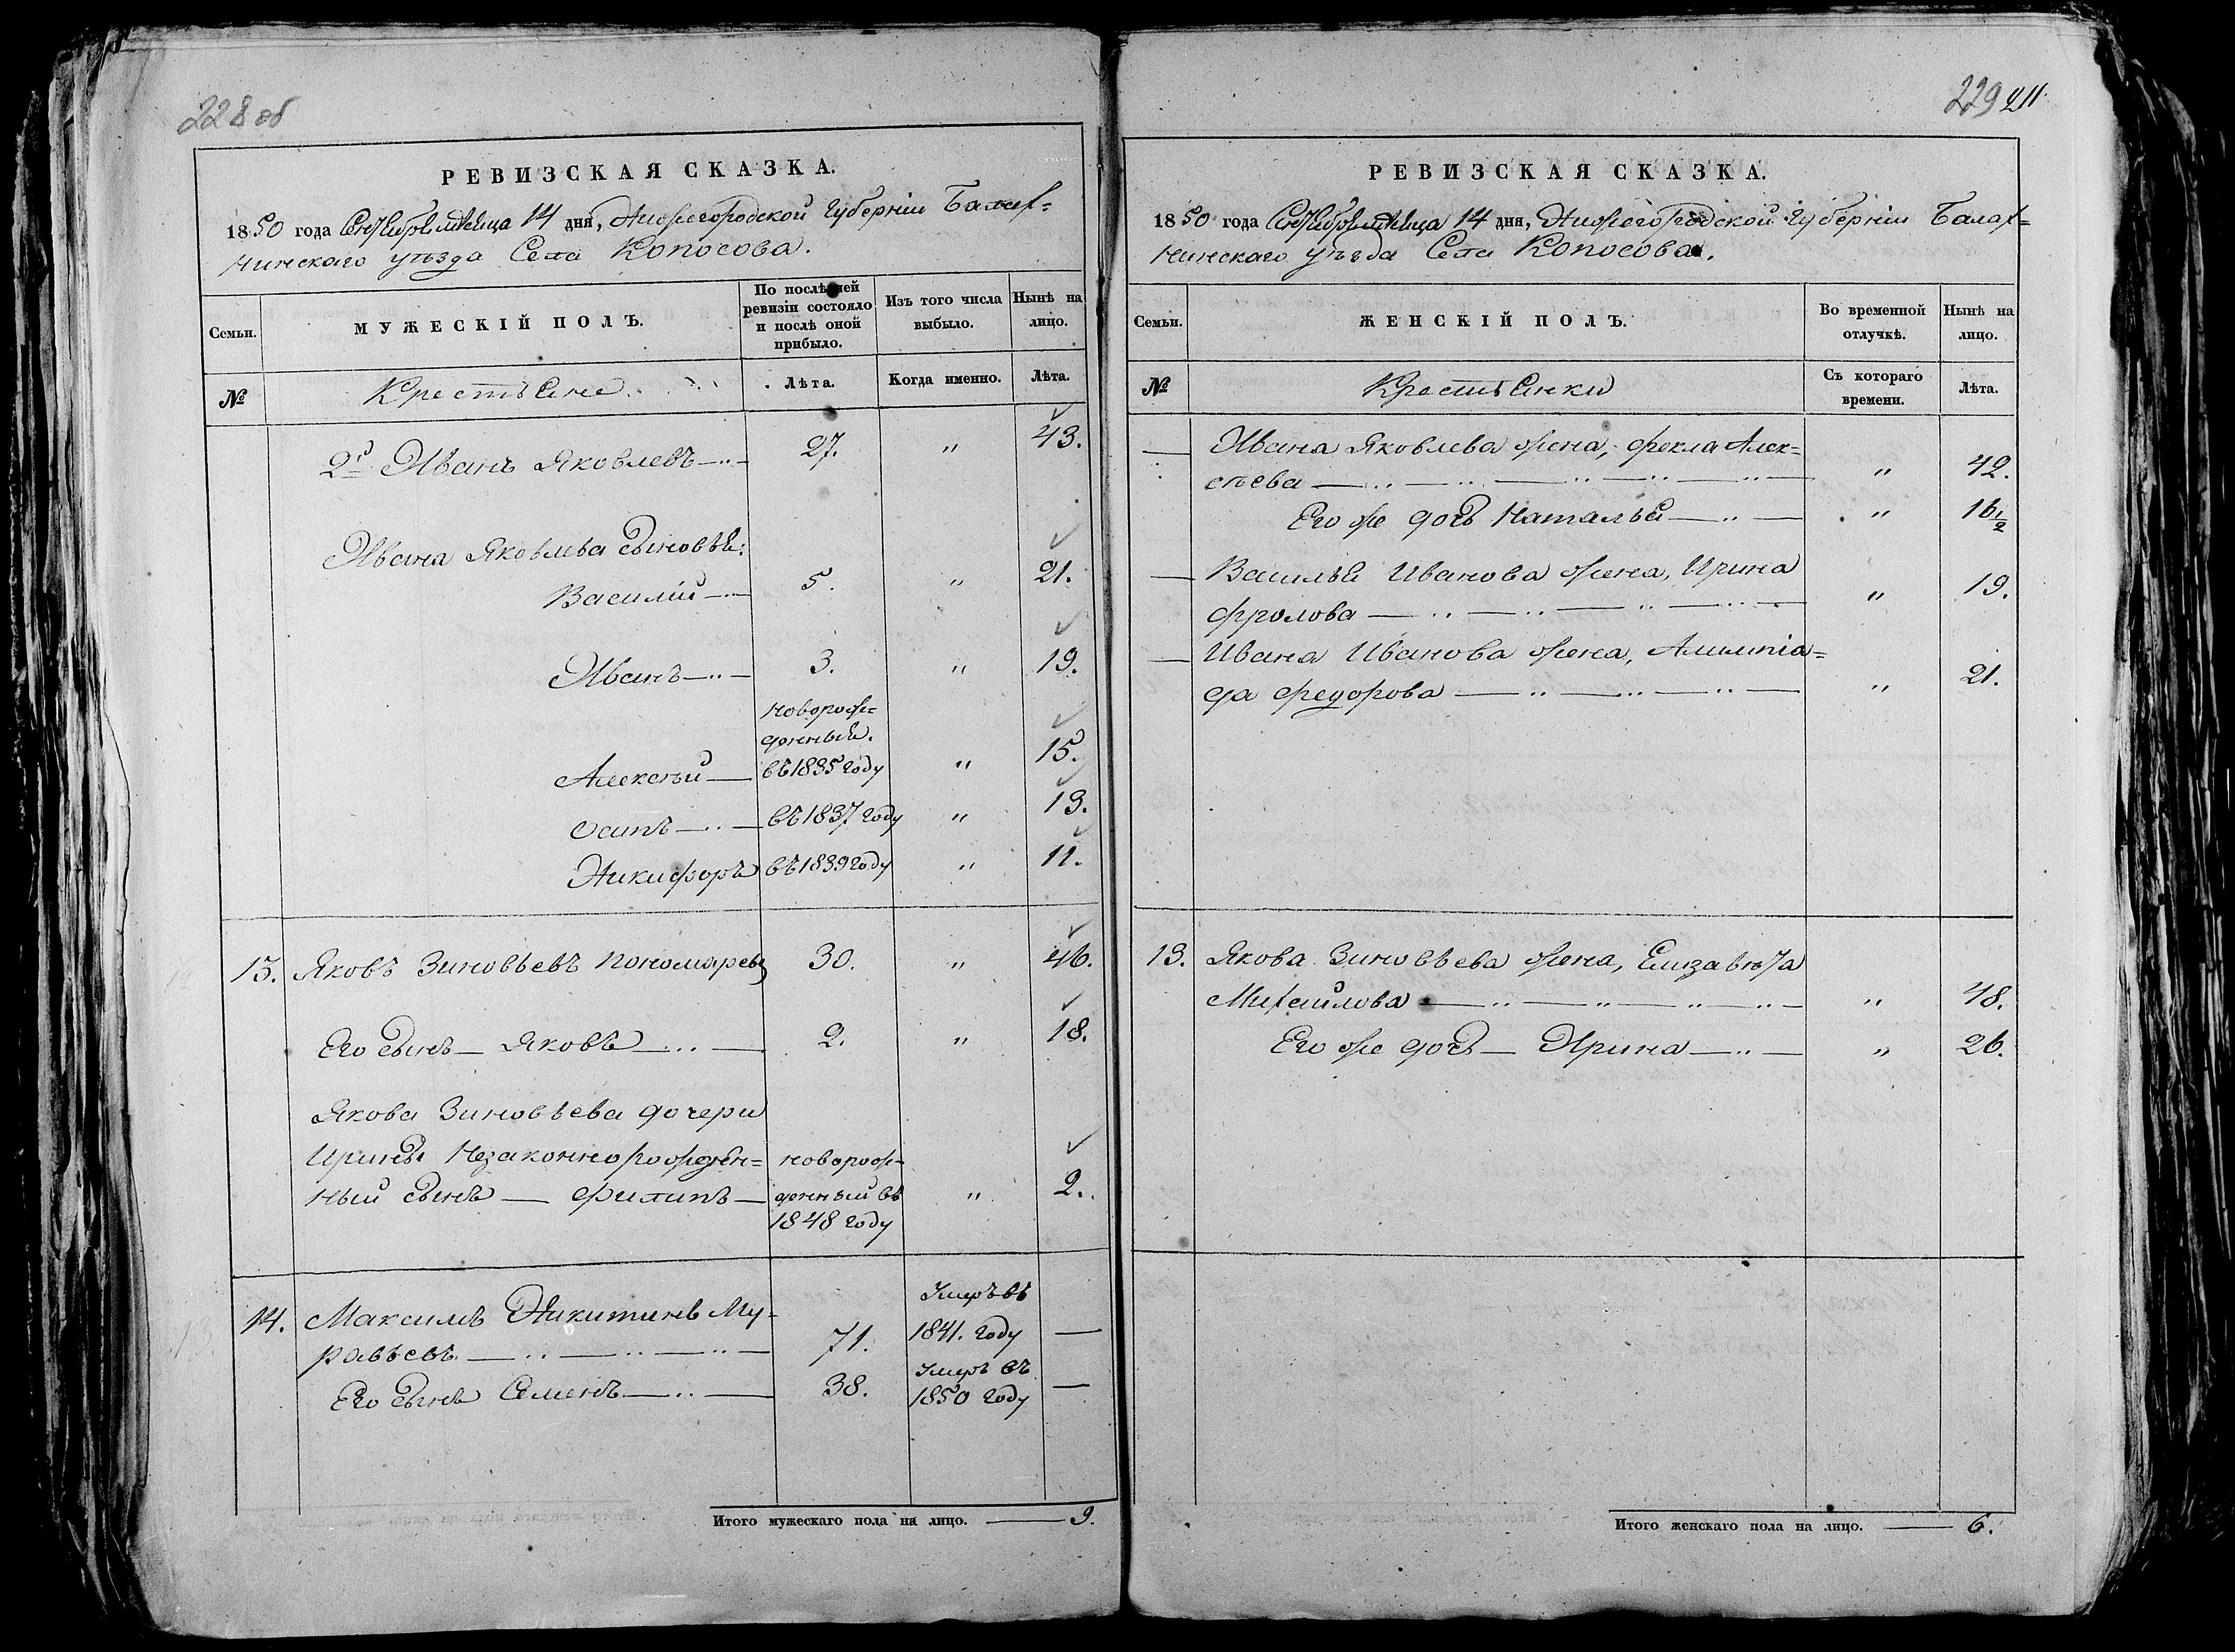 228 об
РЕВИЗСКАЯ СКАЗКА.
1850 года Сентября месяца 14 дня, Нижегородской Губерніи Балах=
нинскаго уѣзда Села Копосова.
Семьи.
МУЖЕСКІЙ ПОЛЪ.
По послѣдней ревизіи состояло и послѣ оной прибыло.
Изъ того числа выбыло.
Нынѣ на лицо.
№
Крестьяне.
Лѣта.
Когда именно.
Лѣта.
2й Иванъ Яковлевъ 27. " 43.
Ивана Яковлева сыновья:
Василій 5. " 21.
Иванъ 3. " 19.
новорож=
денный.
Алексѣй въ 1835 году " 15.
Осипъ въ 1837 году " 13.
Никифоръ въ 1839 году " 11.
13. Яковъ Зиновьевъ Пономаревъ 30. " 46.
Его сынъ Яковъ 2. " 18.
Якова Зиновьева дочери
Ирины Незаконнорожден= новорож=
ный сынъ Филипъ денный въ " 2.
1848 году
14. Максимъ Никитинъ Му= Умеръ въ
равьевъ 71. 1841. году —
Его сынъ Семенъ 38. Умеръ въ
1850 году —
Итого мужескаго пола на лицо. 9.
229 211
РЕВИЗСКАЯ СКАЗКА.
1850 года Сентября месяца 14 дня, Нижегородской Губерніи Балах=
нинскаго уѣзда Села Копосова.
Семьи.
ЖЕНСКІЙ ПОЛЪ.
Во временной отлучкѣ.
Нынѣ на лицо.
№
Крестьянки
Съ котораго времени.
Лѣта.
Ивана Яковлева жена, Фекла Алек=
сѣева " 42.
Его же дочь Наталья " 16 1/2
Василья Иванова жена, Ирина
Фролова " 19.
Ивана Иванова жена, Алимпіа=
да Федорова " 21.
13. Якова Зиновьева жена, Елизавета
Михайлова " 48.
Его же дочь Ирина " 26.
Итого женскаго пола на лицо. 6.